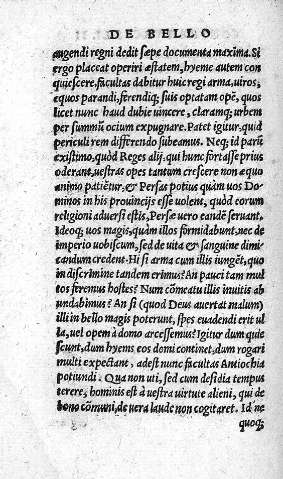 DE BELLO
augendi regni dedit sæpe documenta maxima. Si
ergo placeat operiri æstatem, hyeme autem con
quiescere, facultas dabitur huic regi arma, uiros,
equos parandi, ferendiq; suis optatam opē, quos
licet nunc haud dubie uincere, claramq; urbem
per summū ocium expugnare. Patet igitur, quid
periculi rem differendo subeamus. Neq; id parū
existimo, quòd Reges alij, qui hunc fortasse prius
oderant, uestras opes tantum crescere non æquo
animo patiētur, & Persas potius quàm uos Do=
minos in his prouincijs esse uolent, quòd eorum
religioni aduersi estis, Persæ uero eandē seruant.
Ideoq; uos magis, quàm illos formidabunt, nec de
imperio uobiscum, sed de uita & sanguine dimi
candum credent. Hi si arma cum illis iungēt, quo
in discrimine tandem erimus? An pauci tam mul
tos feremus hostes? Num cōmeatu illis inuitis ab
undabimus? An si (quod Deus auertat malum)
illi in bello magis poterunt, spes euadendi erit ul
la, uel opem à domo arcessemus? Igitur dum quie
scunt, dum hyems eos domi continet, dum rogari
multi expectant, adest nunc facultas Antiochia
potiundi. Qua non uti, sed cum desidia tempus
terere, hominis est à uestra uirtute alieni, qui de
bono cōmuni, de uera laude non cogitaret. Id ne
quoq;